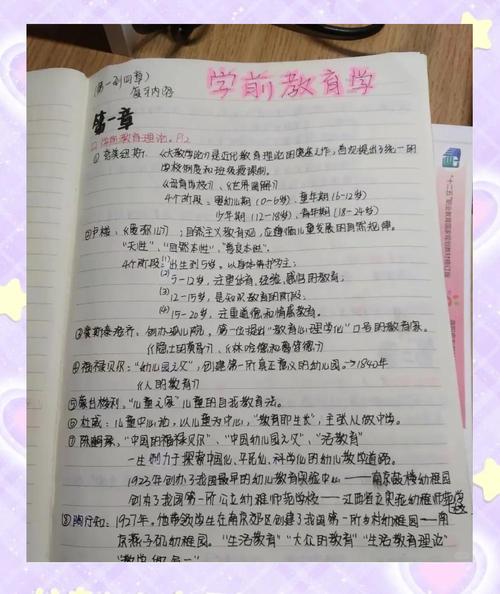 学前教育学
(第一到四章)
复习内容
第一章
口 学前教育理论。P12
① 夸美纽斯:《大教学论》是近代教育理论的奠基之作,首次提出了统一的
学校制度和班级授课制。
《母育学校》、《世界图解》
4个阶段:婴幼儿期(0-6岁)、童年期(6-12岁)
少年期(12-18岁)、青年期(18-24岁)
② 卢梭:《爱弥儿》;自然主义教育观,在遵循儿童发展的自然规律。
"天性"、"自然本性"、"善良本性"。
4个阶段:(1)出生到5岁。以身体养护为主;
(2)5-12岁,注重体育、经验、感官的教育;
(3)12-15岁,是知识教育的阶段。
(4)15-20岁,注重道德和情感教育。
③ 裴斯泰洛齐:创办孤儿院,第一位提出"教育心理学化"口号的教育家。
《隐士的黄昏》、《林哈德和葛笃德》
④ 福禄贝尔:"幼儿园之父",创建第一所真正意义的幼儿园。→1840年
《人的教育》
⑤ 蒙台梭利:"儿童之家"儿童的自我教育法。
⑥ 杜威:儿童中心论,以儿童为中心,"教育即生长",主张从做中学。
⑦ 陈鹤琴,"中国的福禄贝尔"、"中国幼儿园之父"、"活教育"
一生致力于探索中国化、平民化、科学化的幼儿教学道路。
1923年创办了我国最早的幼儿教育实验中心——南京鼓楼幼稚园
创办了我国第一所公立幼稚师范学校——江西省立实验幼稚师范学
校
⑧ 陶行知:1927年。他带领学生在南京郊区创建了我国第一所乡村幼稚园——南
京燕子矶幼稚园。"生活教育""大众的教育""生活教育理论"
"教学做合一"